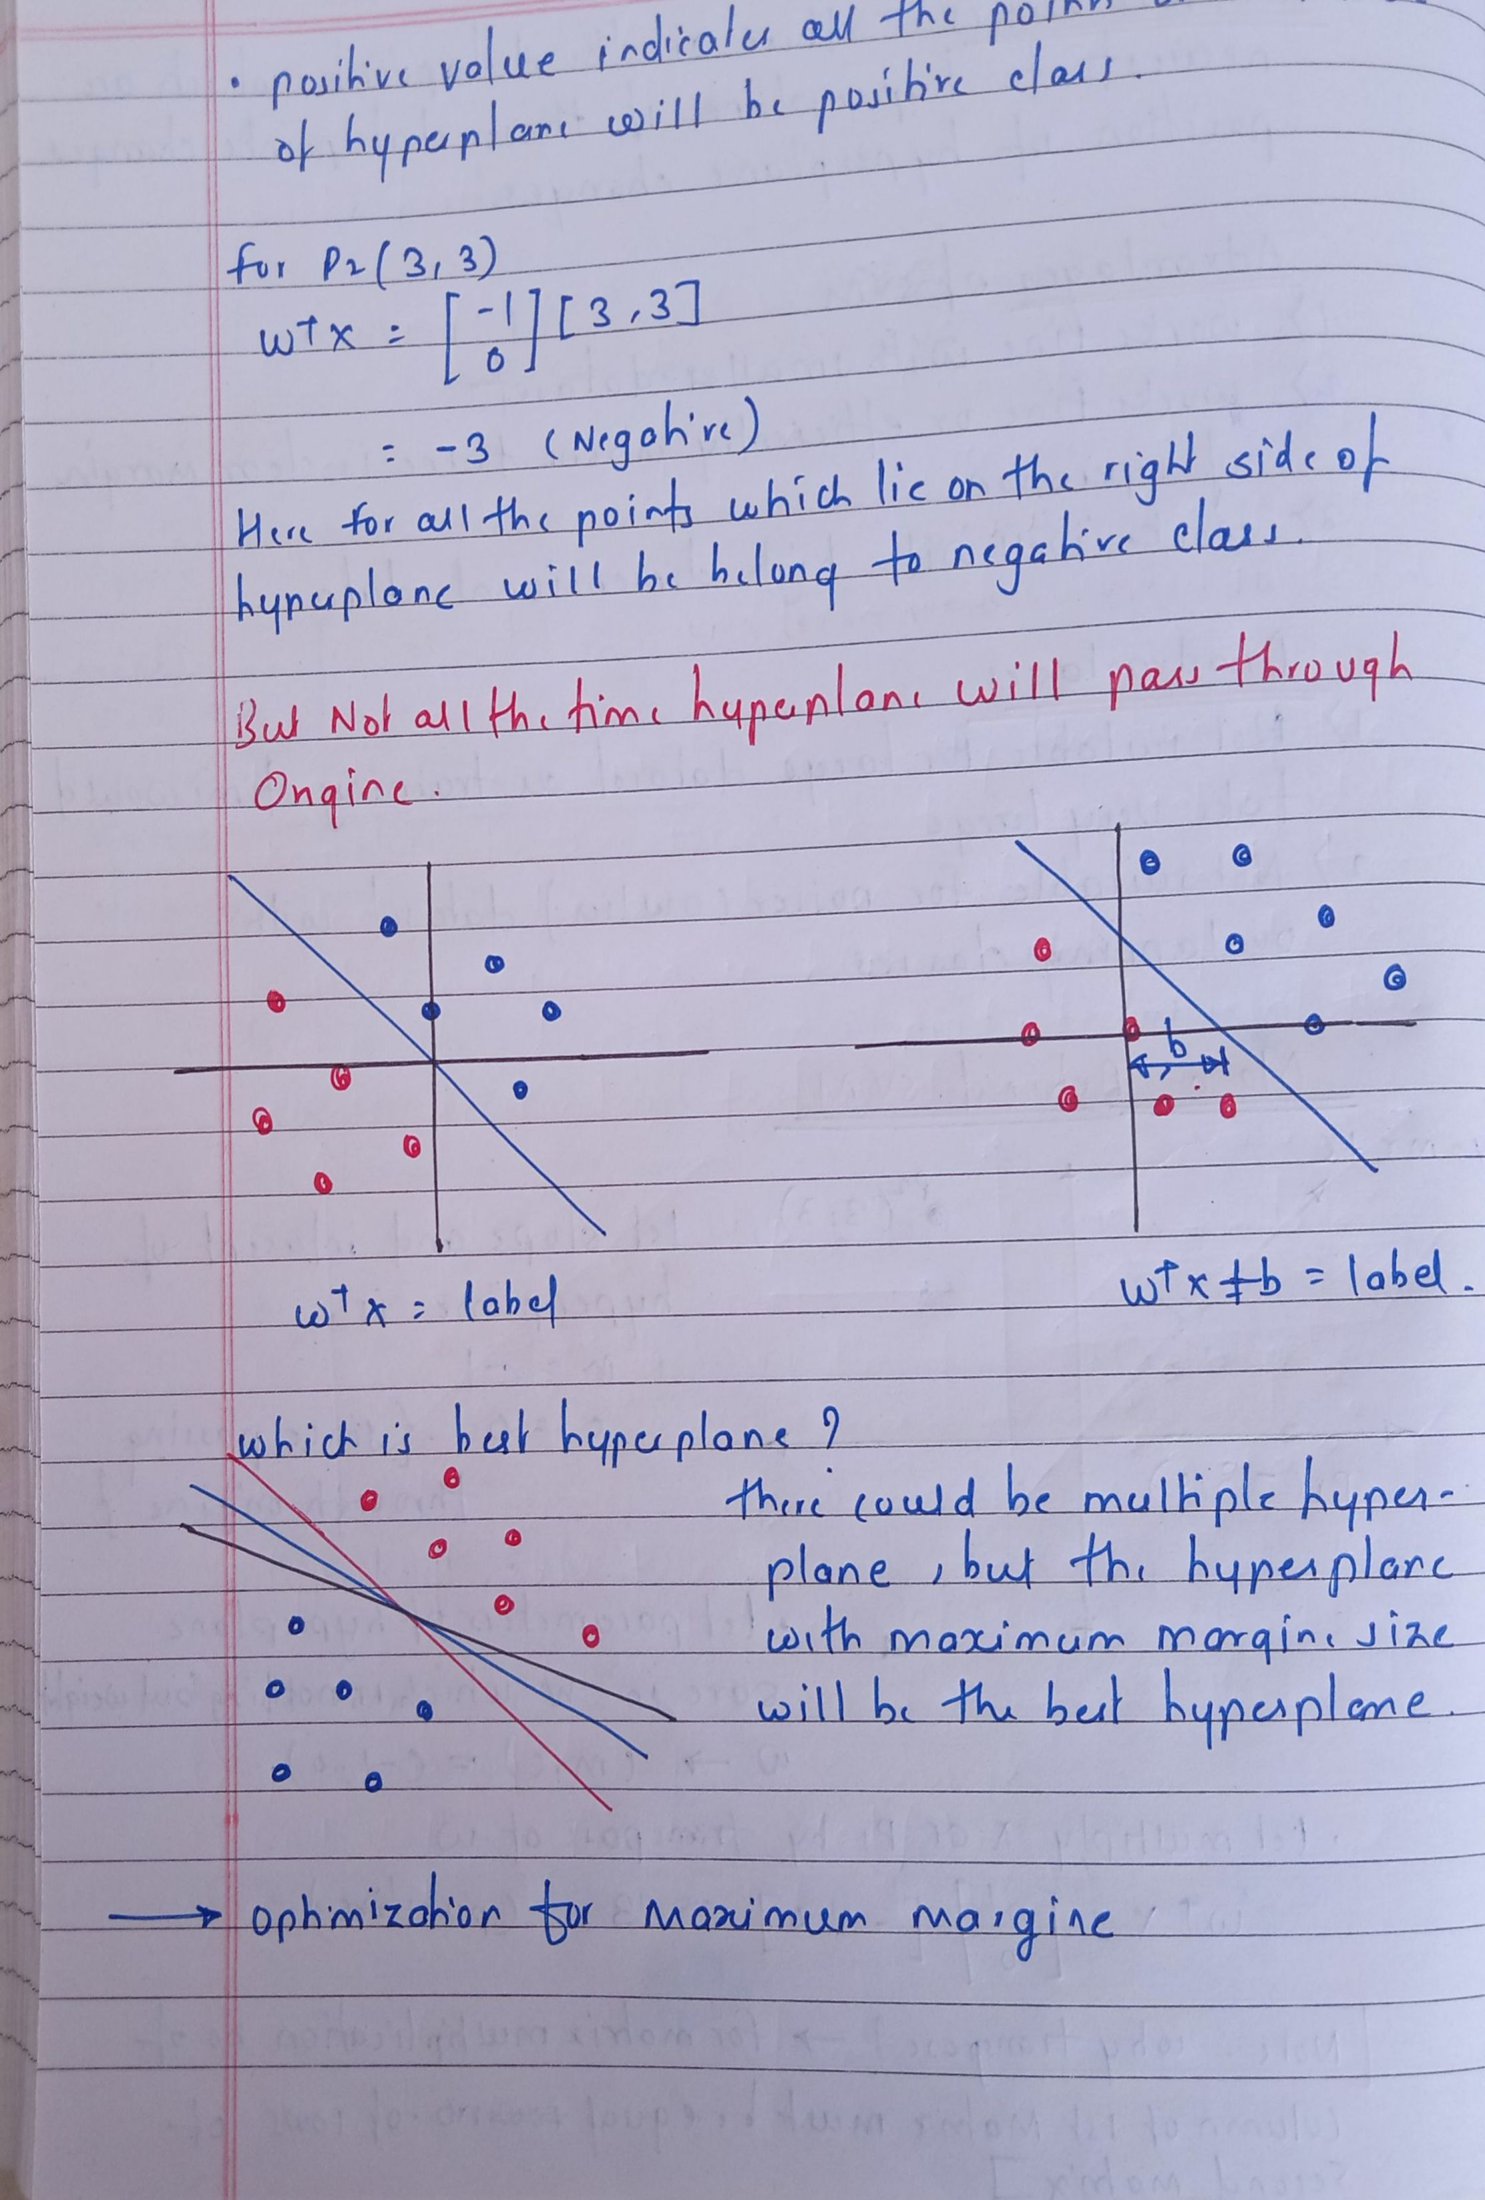 • positive value indicates all the points
of hyperplane will be positive class.
for P2(3,3)
wTx = [-1 0] [3,3]
= -3 (Negative)
Here for all the points which lie on the right side of
hyperplane will be belong to negative class.
But Not all the time hyperplane will pass through
Origine.
b
wTx = label
wTx+b = label.
which is best hyperplane ?
there could be multiple hyper-
plane, but the hyperplane
with maximum margine size
will be the best hyperplane.
→ optimization for Maximum margine